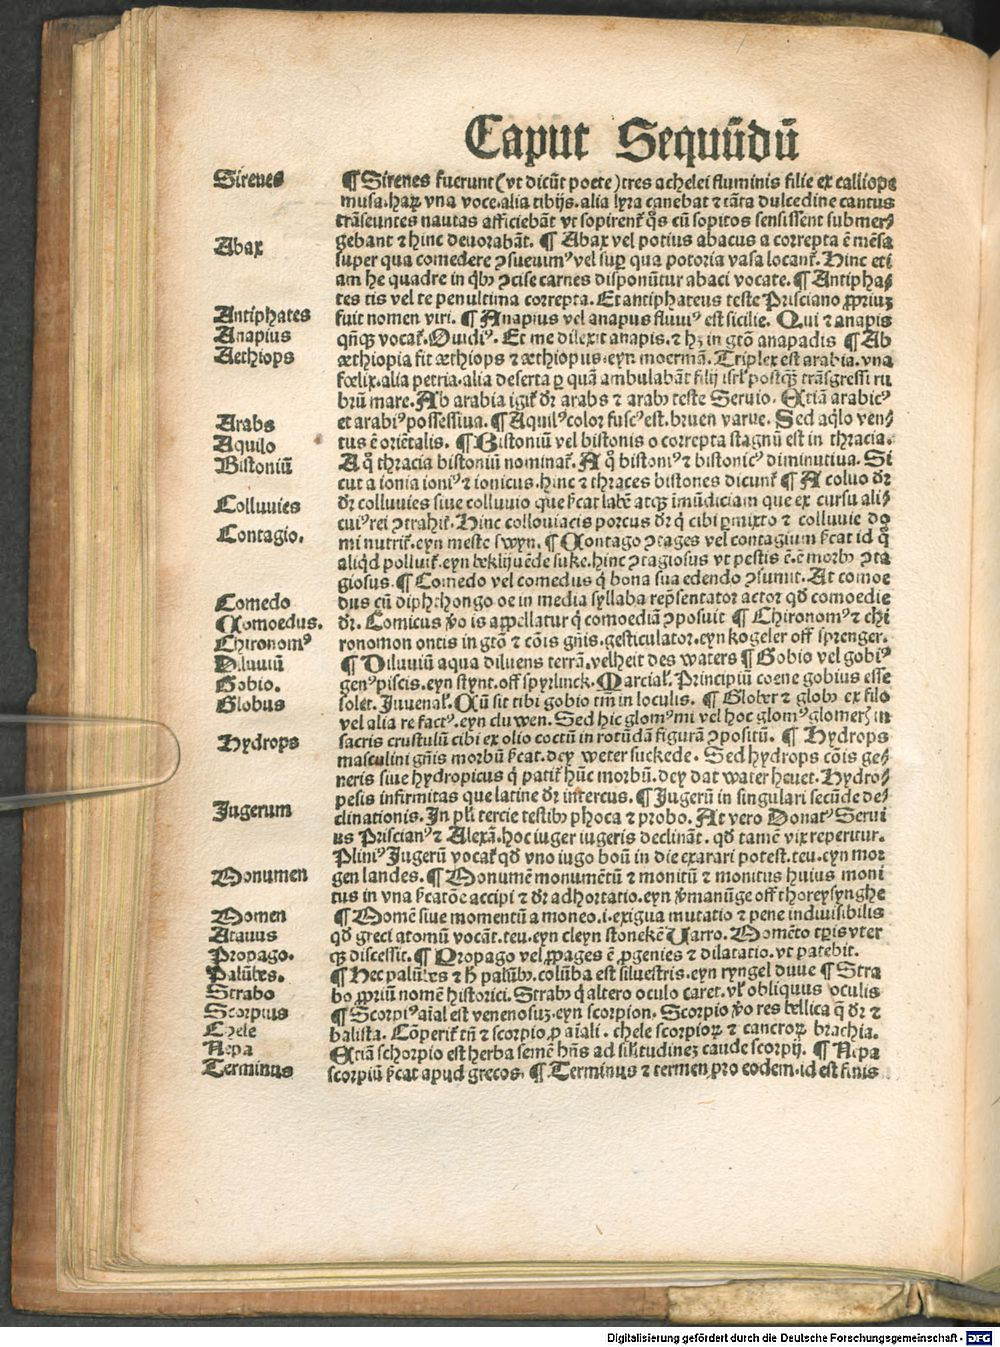 Caput Sequūdū
Sirenes
Abax
Antiphates
Anapius
Aethiops
Arabs
Aquilo
Bistoniū
Colluuies
Contagio.
Comedo
Comoedus.
Chironomꝰ
Diluuiū
Gobio.
Globus
Hydrops
Jugerum
Monumen
Momen
Atauus
Propago.
Palūbes.
Strabo
Scorpius
Chele
Nepa
Terminus
¶ Sirenes fuerunt (vt dicūt poete) tres achelei fluminis filie ex calliopa
musa. haꝝ vna voce. alia tibijs. alia lyra canebat ⁊ tāta dulcedine cantus
trāseuntes nautas afficiebāt vt sopirent̄ q̄s cū sopitos sensissent submer⸗
gebant ⁊ hinc deuorabāt. ¶ Abax vel potius abacus a correpta ē mēsa
super qua comedere ꝯsueuimꝰ vel suꝑ qua potoria vasa locant̄. Hinc eti
am he quadre in qͥbꝰ ꝯcise carnes disponūtur abaci vocate. ¶ Antipha⸗
tes tis vel te penultima correpta. Et antiphateus teste Prisciano ꝓpriuꝫ
fuit nomen viri. ¶ Anapius vel anapus fluuiꝰ est sicilie. Qui ⁊ anapis
qn̄qꝫ vocat̄. Ouidiꝰ. Et me dilexit anapis. ⁊ hꝫ in gtō anapadis ¶ Ab
æthiopia fit æthiops ⁊ æthiopus. eyn moermā. Triplex est arabia. vna
fœlix. alia petria. alia deserta ꝑ quā ambulabāt filij isrl̄ postqꝫ trāsgressi ru
brū mare. Ab arabia igit̄ dr̄ arabs ⁊ arabꝰ teste Seruio. Etiā arabicꝰ
et arabiꝰ possessiua. ¶ Aquilꝰ color fuscꝰ est. bruen varue. Sed aq̄lo ven⸗
tus ē oriētalis. ¶ Bistoniū vel bistonis o correpta stagnū est in thracia.
A q̄ thracia bistoniū nominat̄. A q̄ bistoniꝰ ⁊ bistonicꝰ diminutiua. Si
cut a ionia ioniꝰ ⁊ ionicus. hinc ⁊ thraces bistones dicunt̄ ¶ A coluo dr̄
dr̄ colluuies siue colluuio que s̄cat labē atqꝫ imūdiciam que ex cursu ali
cuiꝰ rei ꝯtrahit̄. Hinc collouiacis porcus dr̄ q̄ cibi ꝑmixto ⁊ colluuie do
mi nutrit̄. eyn meste swyn. ¶ Contago ꝯtages vel contagium s̄cat id q̄
aliqd polluit̄. eyn beklijuēde suke. hinc ꝯtagiosus vt pestis ē. ē morbꝰ ꝯta
giosus. ¶ Comedo vel comedus q̄ bona sua edendo ꝯsumit. At comoe
dus cū diphthongo oe in media syllaba rep̄sentator actor qd̄ comoedie
dr̄. Comicus v̄o is appellatur q̄ comoediā ꝯposuit ¶ Chironomꝰ ⁊ chi
ronomon ontis in gtō ⁊ cōis gn̄is. gesticulator. eyn kogeler off sprenger.
¶ Diluuiū aqua diluens terrā. velheit des waters ¶ Gobio vel gobiꝰ
genꝰ piscis. eyn stynt. off spyrlinck. Marcial̄. Principiū coene gobius esse
solet. Juuenal̄. Cū sit tibi gobio tm̄ in loculis. ¶ Glober ⁊ globꝰ ex filo
vel alia re factꝰ. eyn cluwen. Sed hic glomꝰ mi vel hoc glomꝰ glomerꝭ in
sacris crustulū cibi ex olio coctū in rotūdā figurā ꝯpositū. ¶ Hydrops
masculini gn̄is morbū s̄cat. dey weter suckede. Sed hydrops cōis ge⸗
neris siue hydropicus q̄ patit̄ hūc morbū. dey dat water heuet. Hydro⸗
pesis infirmitas que latine dr̄ intercus. ¶ Jugerū in singulari secūde de⸗
clinationis. In pl̄i tercie testibꝰ phoca ⁊ probo. At vero Donatꝰ Serui
us Priscianꝰ ⁊ Alexā. hoc iuger iugeris declināt. qd̄ tamē vix reperitur.
Pliniꝰ Jugerū vocat̄ qd̄ vno iugo boū in die exarari potest. teu. eyn mor
gen landes. ¶ Monumē monumētū ⁊ monitū ⁊ monitus huius moni
tus in vna s̄catōe accipi ⁊ dr̄ adhortatio. eyn v̄manūge off thoreysynghe
¶ Momē siue momentū a moneo. i. exigua mutatio ⁊ pene indiuisibilis
qd̄ greci atomū vocāt. teu. eyn cleyn stonekē Varro. Momēto tp̄is vter
qꝫ discessit. ¶ Propago vel ꝓpages ē ꝓgenies ⁊ dilatatio. vt patebit.
¶ Hec palūbes ⁊ h̄ palūbꝰ. colūba est siluestris. eyn ryngel duue ¶ Stra
bo ꝓpriū nomē historici. Strabꝰ q̄ altero oculo caret. vl̄ obliquus oculis
¶ Scorpiꝰ aīal est venenosuꝫ. eyn scorpion. Scorpio v̄o res bellica q̄ dr̄ ⁊
balista. Cōperit̄ tn̄ ⁊ scorpio ꝓ aīali. chele scorpioꝝ ⁊ cancroꝝ brachia.
Etiā schorpio est herba semē hn̄s ad sil̄itudineꝫ caude scorpij. ¶ Nepa
scorpiū s̄cat apud grecos. ¶ Terminus ⁊ termen pro eodem. id est finis
Digitalisierung gefördert durch die Deutsche Forschungsgemeinschaft - DFG